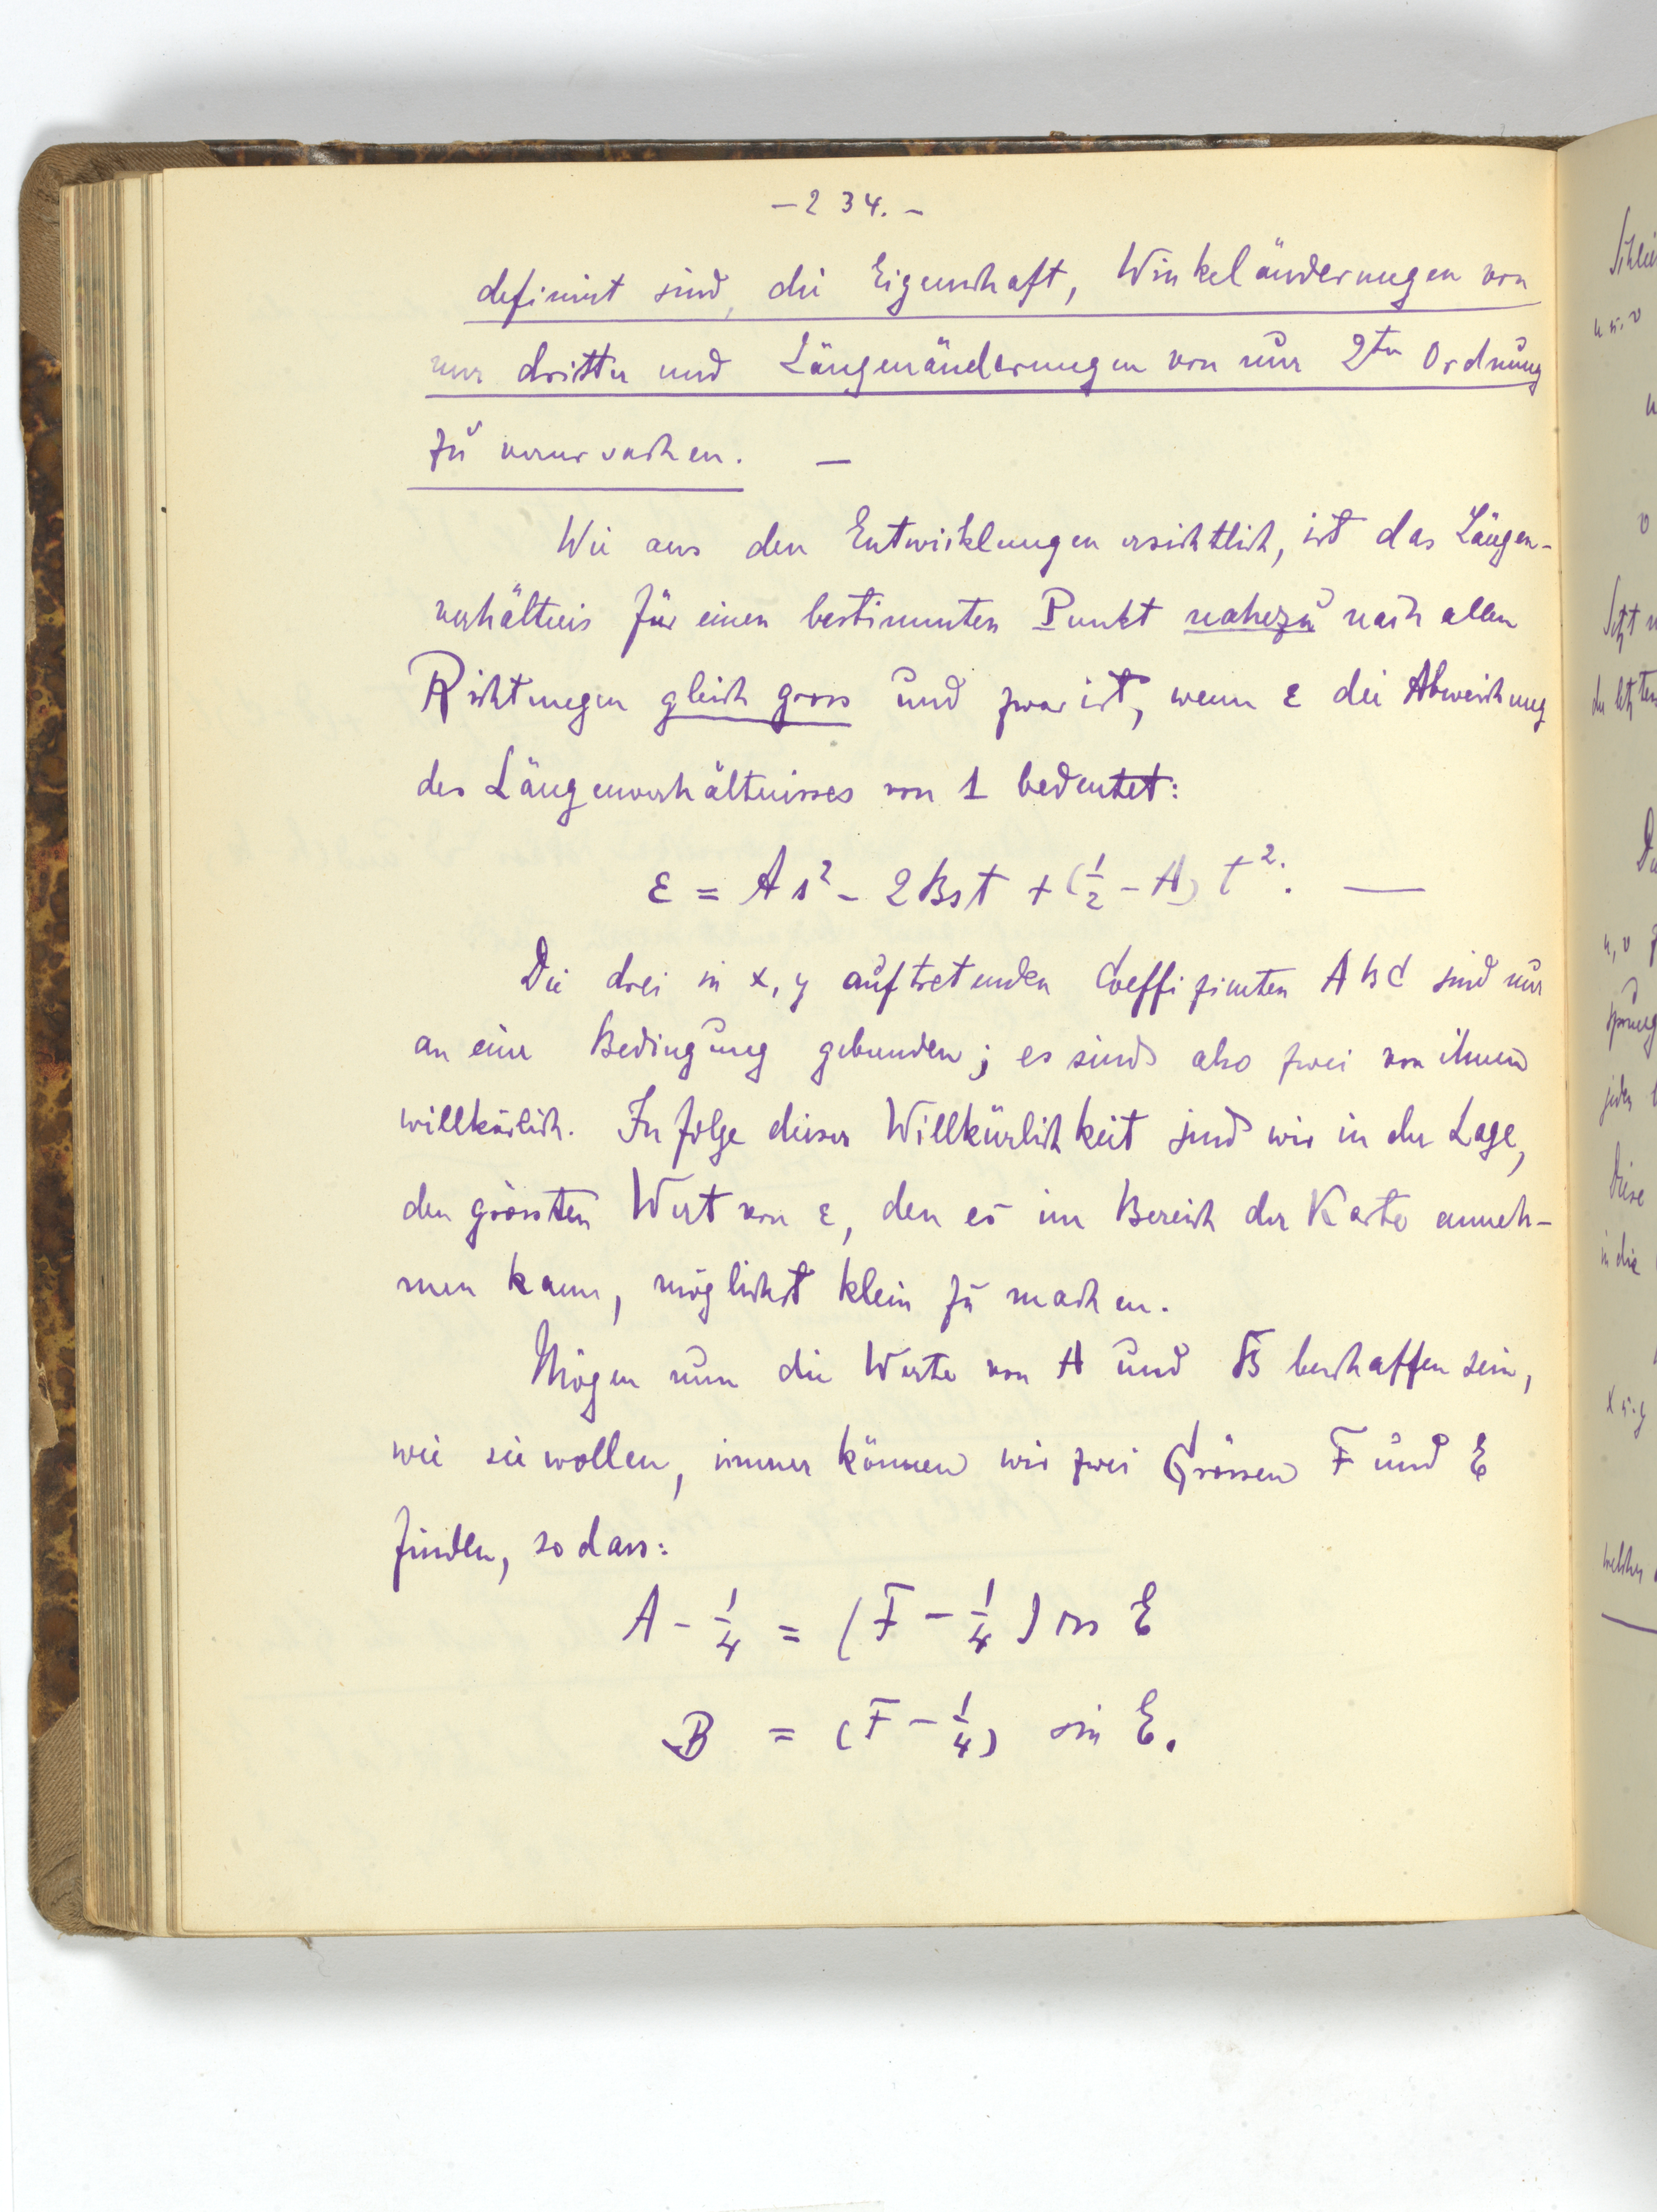 – 2 34. –
definirt sind, die Eigenschaft, Winkeländerungen von
nur dritter und Längenänderungen von nur 2ter Ordnung
zu verursachen. —
Wie aus den Entwicklungen ersichtlich, ist das Längen-
verhältnis für einen bestimmten Punkt nahezu nach allen
Richtungen gleich gross und zwar ist, wenn ε die Abweichung
des Längenverhältnisses von 1 bedeutet:
ε = As² - 2Bst + (1/2 - A) t². —
Die drei in x, y auftretenden Coeffizienten A B C sind nur
an eine Bedingung gebunden; es sind also zwei von ihnen
willkürlich. In folge dieser Willkürlichkeit sind wir in der Lage,
den grössten Wert von ε, den es im Bereich der Karte anneh-
men kann, möglichst klein zu machen.
Mögen nun die Werte von A und B beschaffen sein,
wie sie wollen, immer können wir zwei Grössen F und E
finden, so dass:
A - 1/4 = (F - 1/4) cos E
B = (F - 1/4) sin E.
u. v
u
v
u, v
jeder
Diese
in die
x u. y
welcher